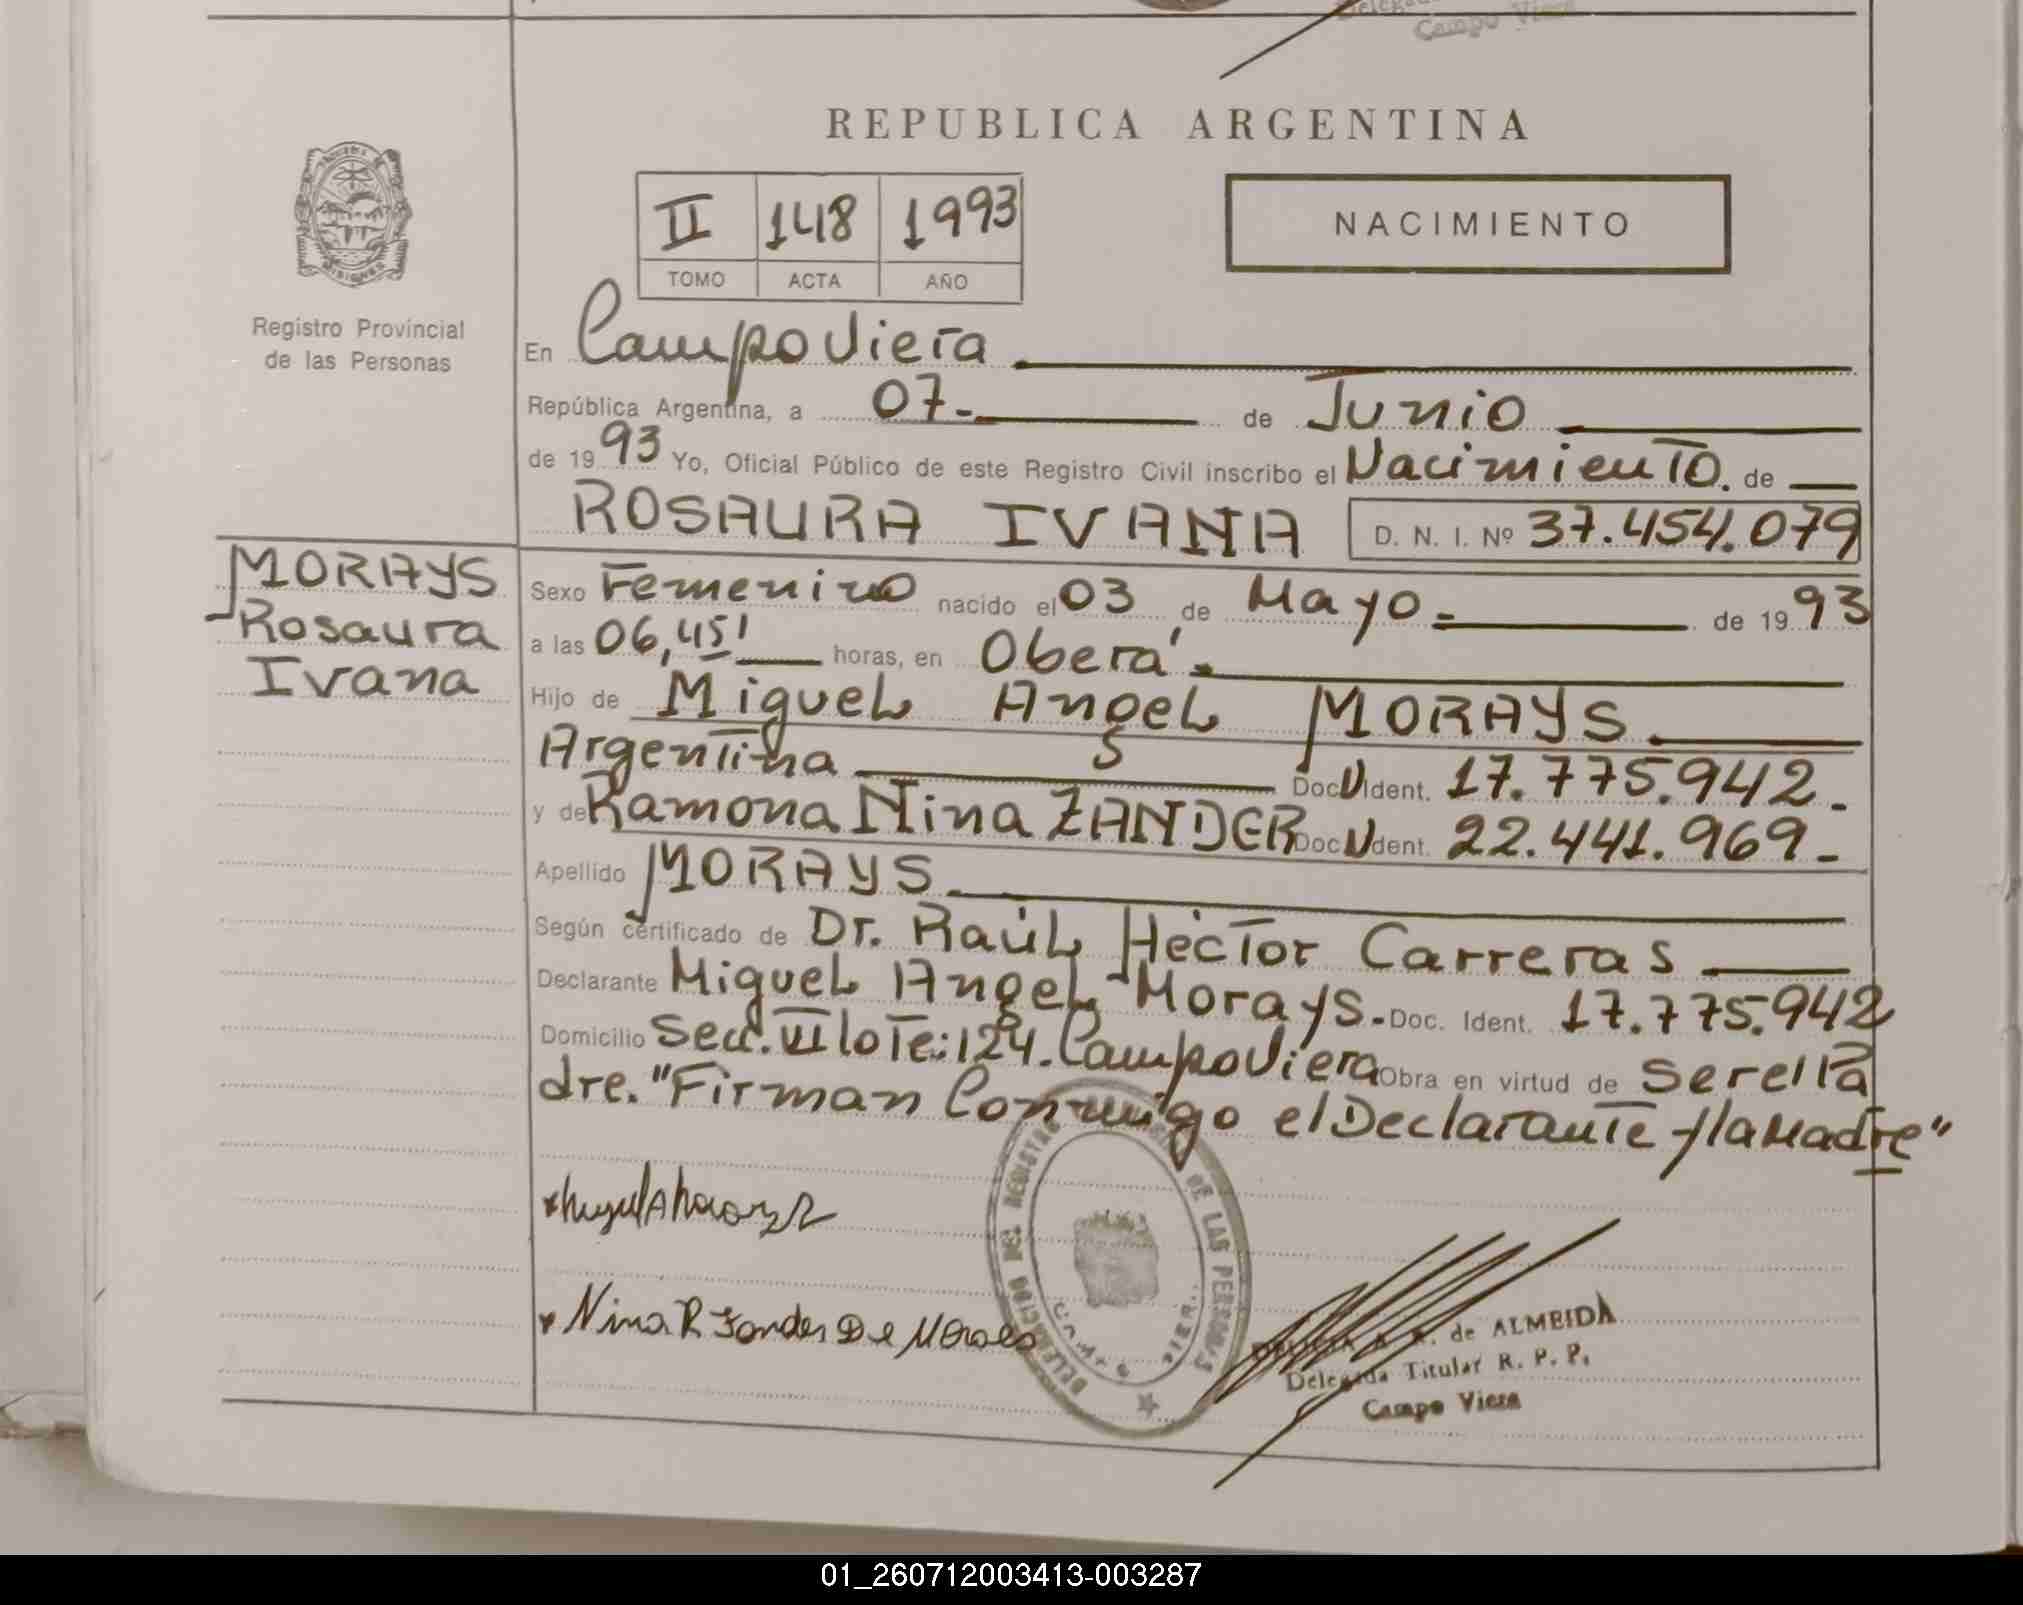 Campo Viera
REPUBLICA ARGENTINA
II 148 1993
TOMO ACTA AÑO
NACIMIENTO
Registro Provincial
de las Personas
En Campo Viera
República Argentina, a 07- de Junio
de 1993 Yo, Oficial Público de este Registro Civil inscribo el Nacimiento. de
ROSAURA IVANA D. N. I. Nº 37.454.079
MORAYS
Rosaura
Ivana
Sexo Femenino nacido el 03 de Mayo.= de 1993
a las 06,45' horas, en Oberá.
Hijo de Miguel Angel MORAYS
Argentina Doc. U Ident. 17.775.942.-
y de Ramona Nina ZANDER Doc. U Ident. 22.441.969-
Apellido MORAYS
Según certificado de Dr. Raúl Héctor Carreras
Declarante Miguel Angel Morays.- Doc. Ident. 17.775.942
Domicilio Secc. VI lote: 124. Campo Viera Obra en virtud de ser el Pa
dre. "Firman Conmigo el Declarante y la Madre"
DELEGACION DEL REGISTRO DE LAS PERSONAS
CAMPO VIERA
Nina R Zander De Moraes
de ALMEIDA
Delegada Titular R. P. P.
Campo Viera
01_260712003413-003287